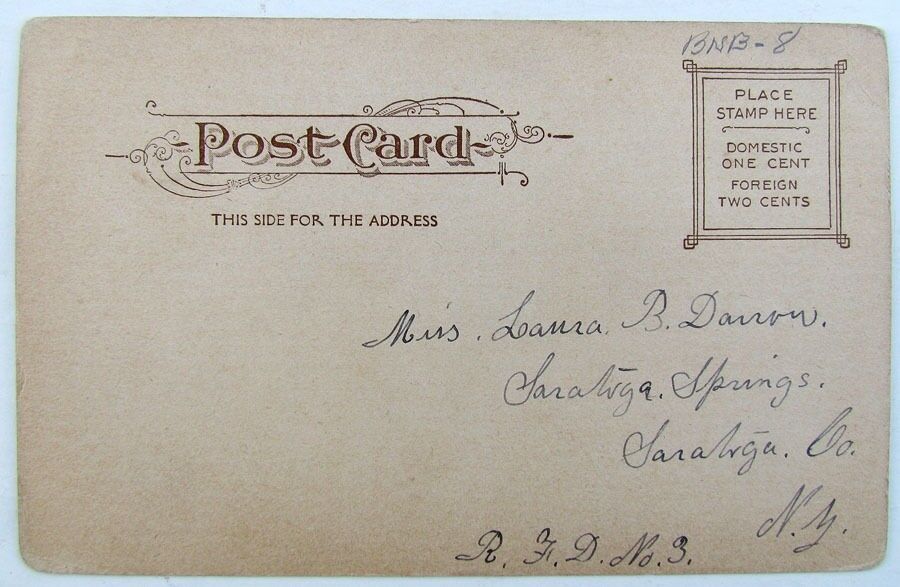 BNB-8
Post Card
THIS SIDE FOR THE ADDRESS
PLACE
STAMP HERE
DOMESTIC
ONE CENT
FOREIGN
TWO CENTS
Miss. Laura. B. Darrow.
Saratoga. Springs.
Saratoga. Co.
N.Y.
R. F. D. No. 3.